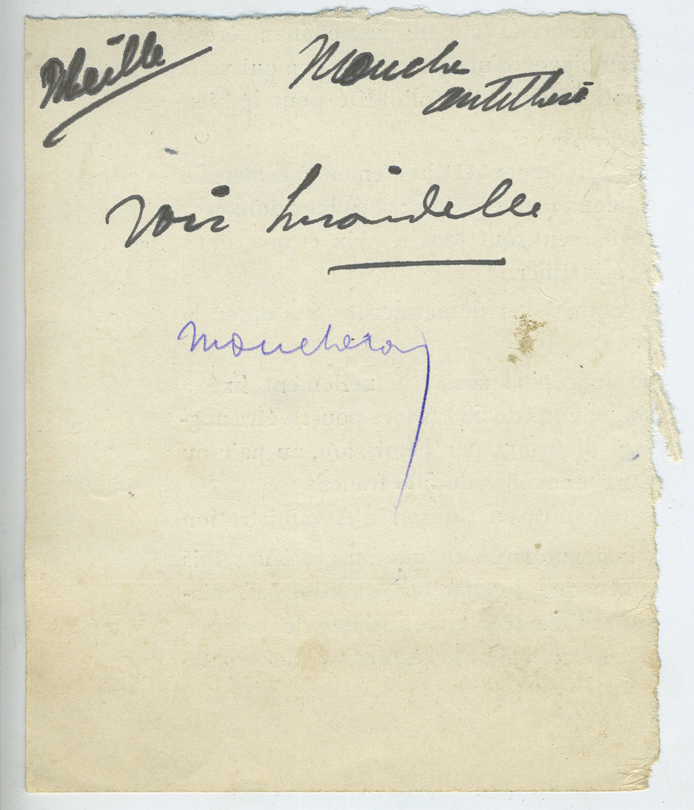 Abeille
Mouche
antithèse
voir hirondelle
moucheron